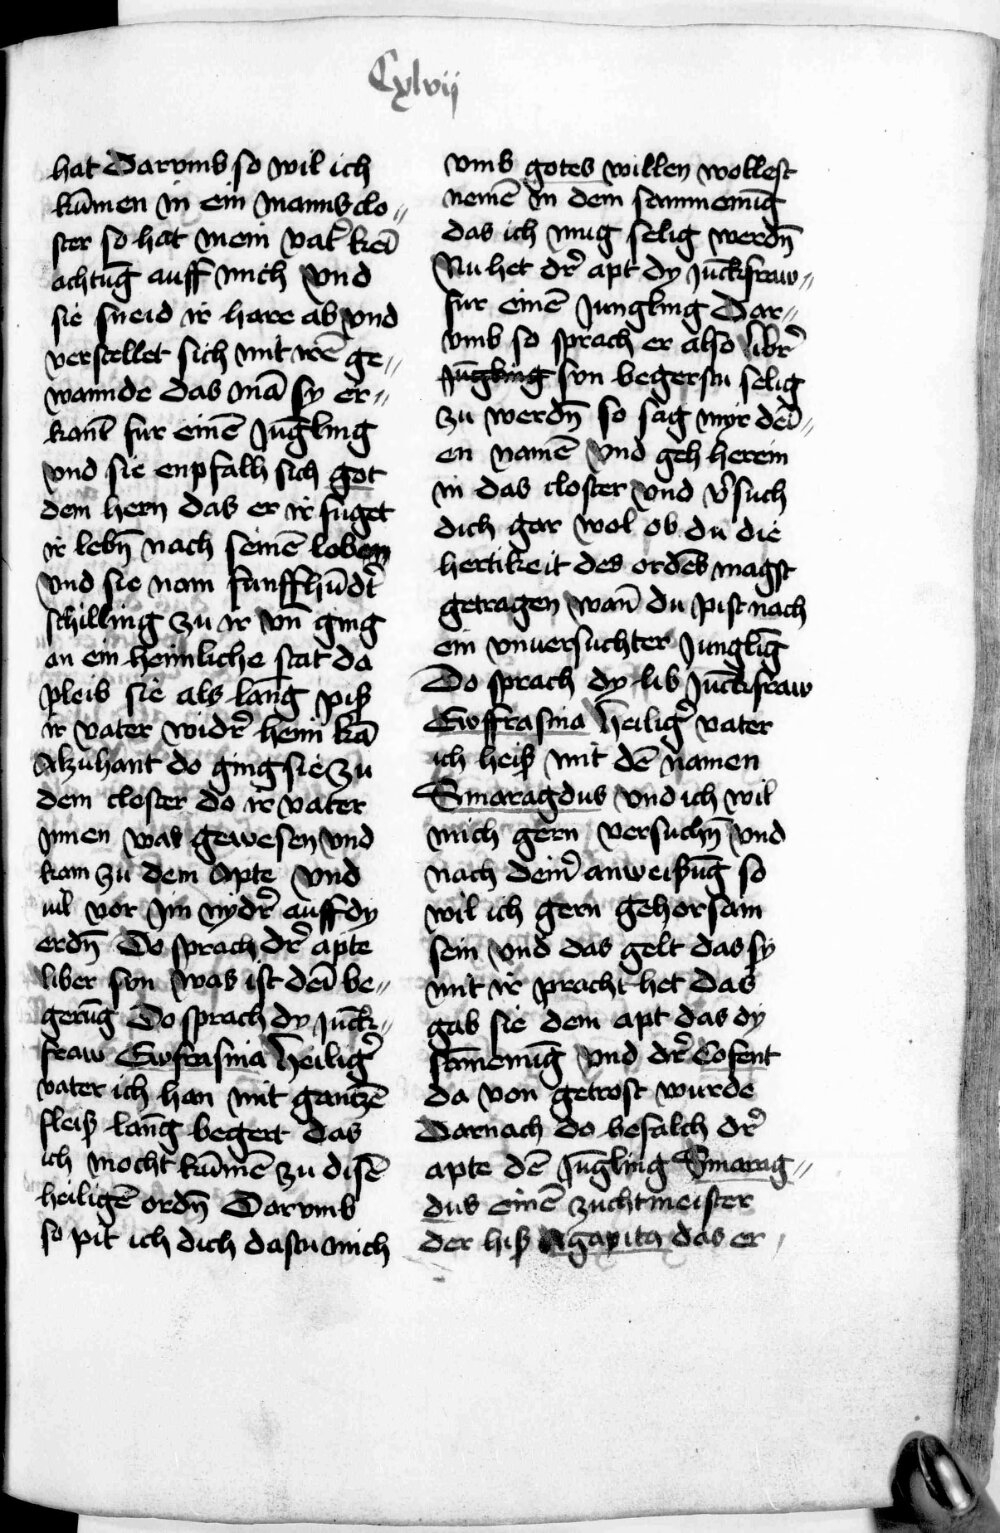 Cxlvii
hat Darvmb so wil ich
kūmen in ein manns clo〃
ster so hat mein vat̄ kei̅
achtūg auff mich vnd
sie sneid ir hare ab vnd
verstellet sich mit irē ge〃
wannde das mā sy er〃
kant̄ fur einē Jūgling
vnd sie enpfalh sich got
dem hern das er ir fuget
ir lebn̄ nach seinē loben
vnd sie nam funffhūdt̄
schilling zu ir vn̄ ging
an ein heimliche stat da
pleib sie als lang piß
ir vater widr̄ heim kā
Alzuhant do ging sie zu
dem closter do ir vater
jnnen was gewesen vnd
kam zu dem Apte vnd
viel vor jm nydr̄ auff dy
erdn̄ Do sprach dr̄ apte
liber son was ist dei̅ be〃
gerūg Do sprach dy Jūck〃
fraw Ewfrasina heiliḡ
vater ich han mit gantzē
fleiß lang begert das
ich mocht kūmē zu disē
heiligē ordn̄ Darvmb
so pit ich dich dastu mich
vmb gotes willen wollest
nemē in dem sammenūg
das ich mug selig werdn̄
Nu het dr̄ apt dy Jūckfraw〃
fur einē Jungling Dar〃
vmb so sprach er also libr̄
Jūgling son begerstu selig
zu werdn̄ so sag myr dei̅〃
en namē vnd geh herein
in das closter vnd v̄such
dich gar wol ob du die
hertikeit des ordēs magst
getragen wan̄ du pist noch
ein vnuersuchter Junglīg
Do sprach dy lib Jūckfraw
Ewffrasina heiliḡ vater
ich heiß mit dē namen
Smaragdus vnd ich wil
mich gern versuchn̄ vnd
nach deinr̄ anweißūg so
wil ich gern gehorsam
sein vnd das gelt das sy
mit ir pracht het das
gab sie dem apt das dy
samenūg vnd dr̄ Cofent
da von getrost wurde
Darnach do befalch dr̄
apte dē Jūgling Smarag〃
dus einē zuchtmeister
der hiß Agapita das er